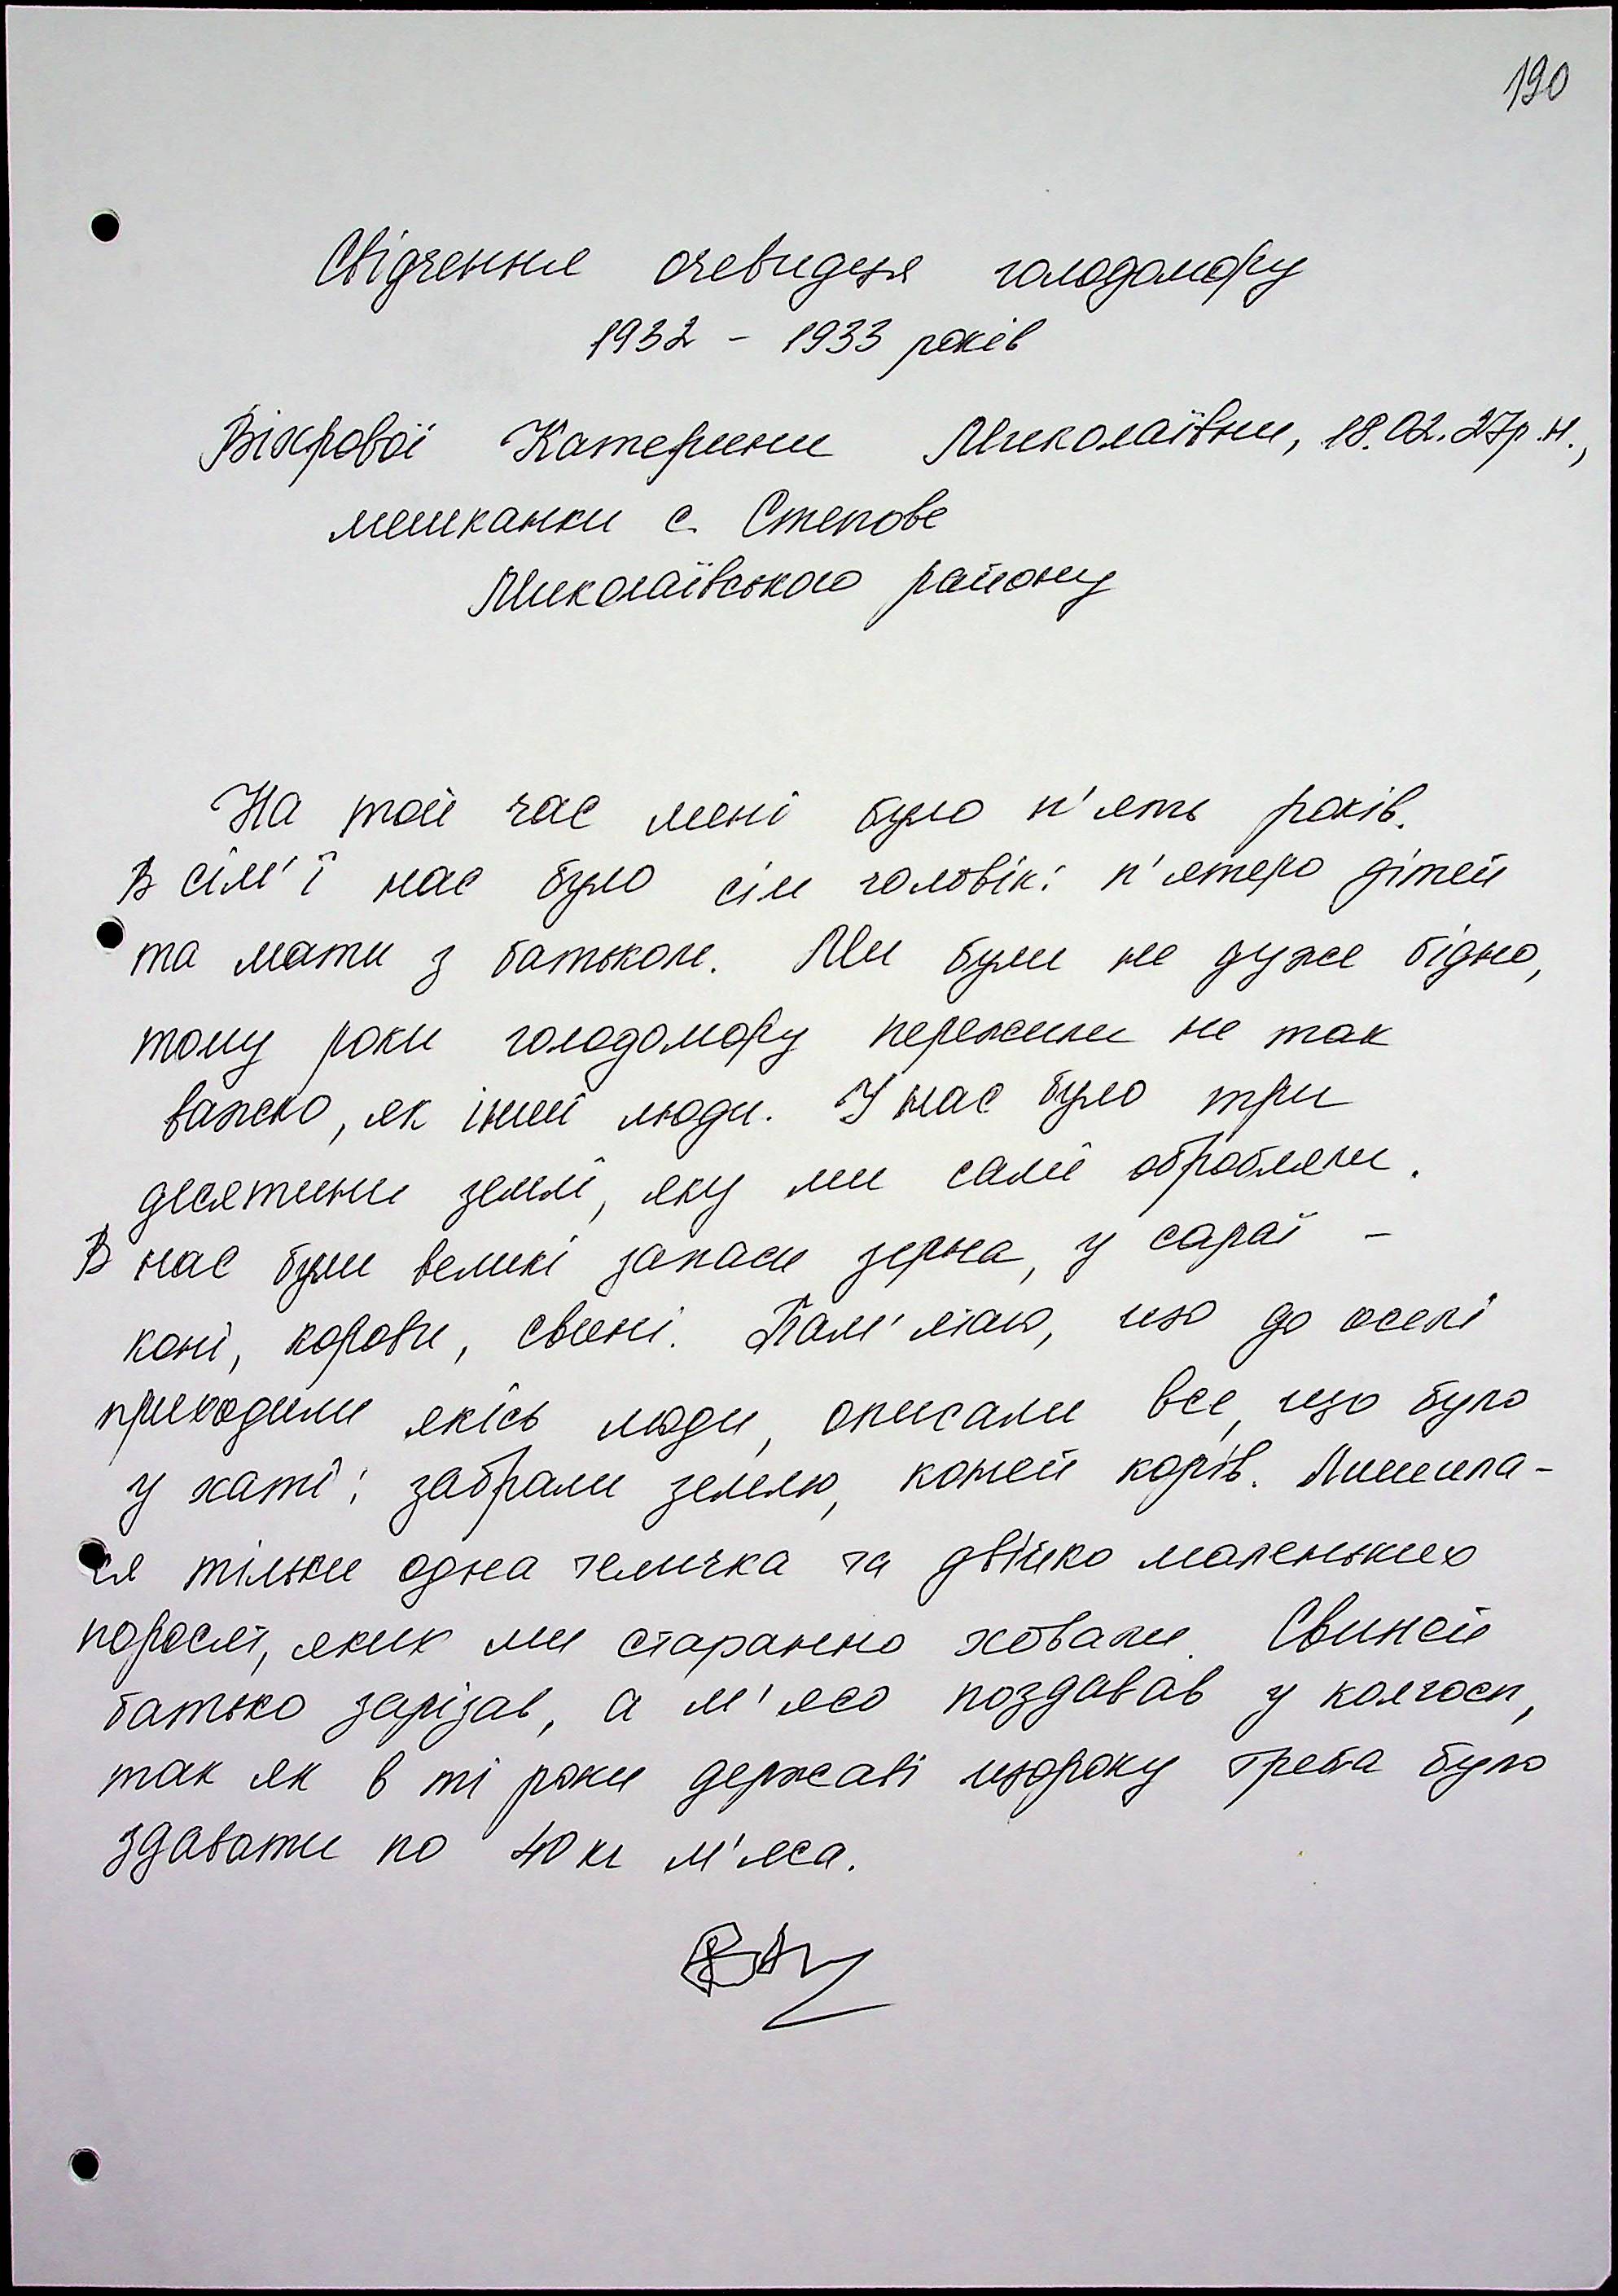 190
Свідчення очевидця голодомору
1932 - 1933 років
Віхрової Катерини Миколаївни, 18.02.27р.н.,
мешканки с. Степове
Миколаївського району
На той час мені було п'ять років.
В сім'ї нас було сім чоловік: п'ятеро дітей
та мати з батьком. Ми були не дуже бідно,
тому роки голодомору пережили не так
важко, як інші люди. У нас було три
десятини землі, яку ми самі обробляли.
В нас були великі запаси зерна, у сараї -
коні, корови, свині. Пам'ятаю, що до оселі
приходили якісь люди, описали все, що було
у хаті; забрали землю, коней корів. Лишила-
ся тільки одна теличка та двійко маленьких
поросят, яких ми старанно ховали. Свиней
батько зарізав, а м'ясо поздавав у колгосп,
так як в ті роки державі щороку треба було
здавати по 40 кг м'яса.